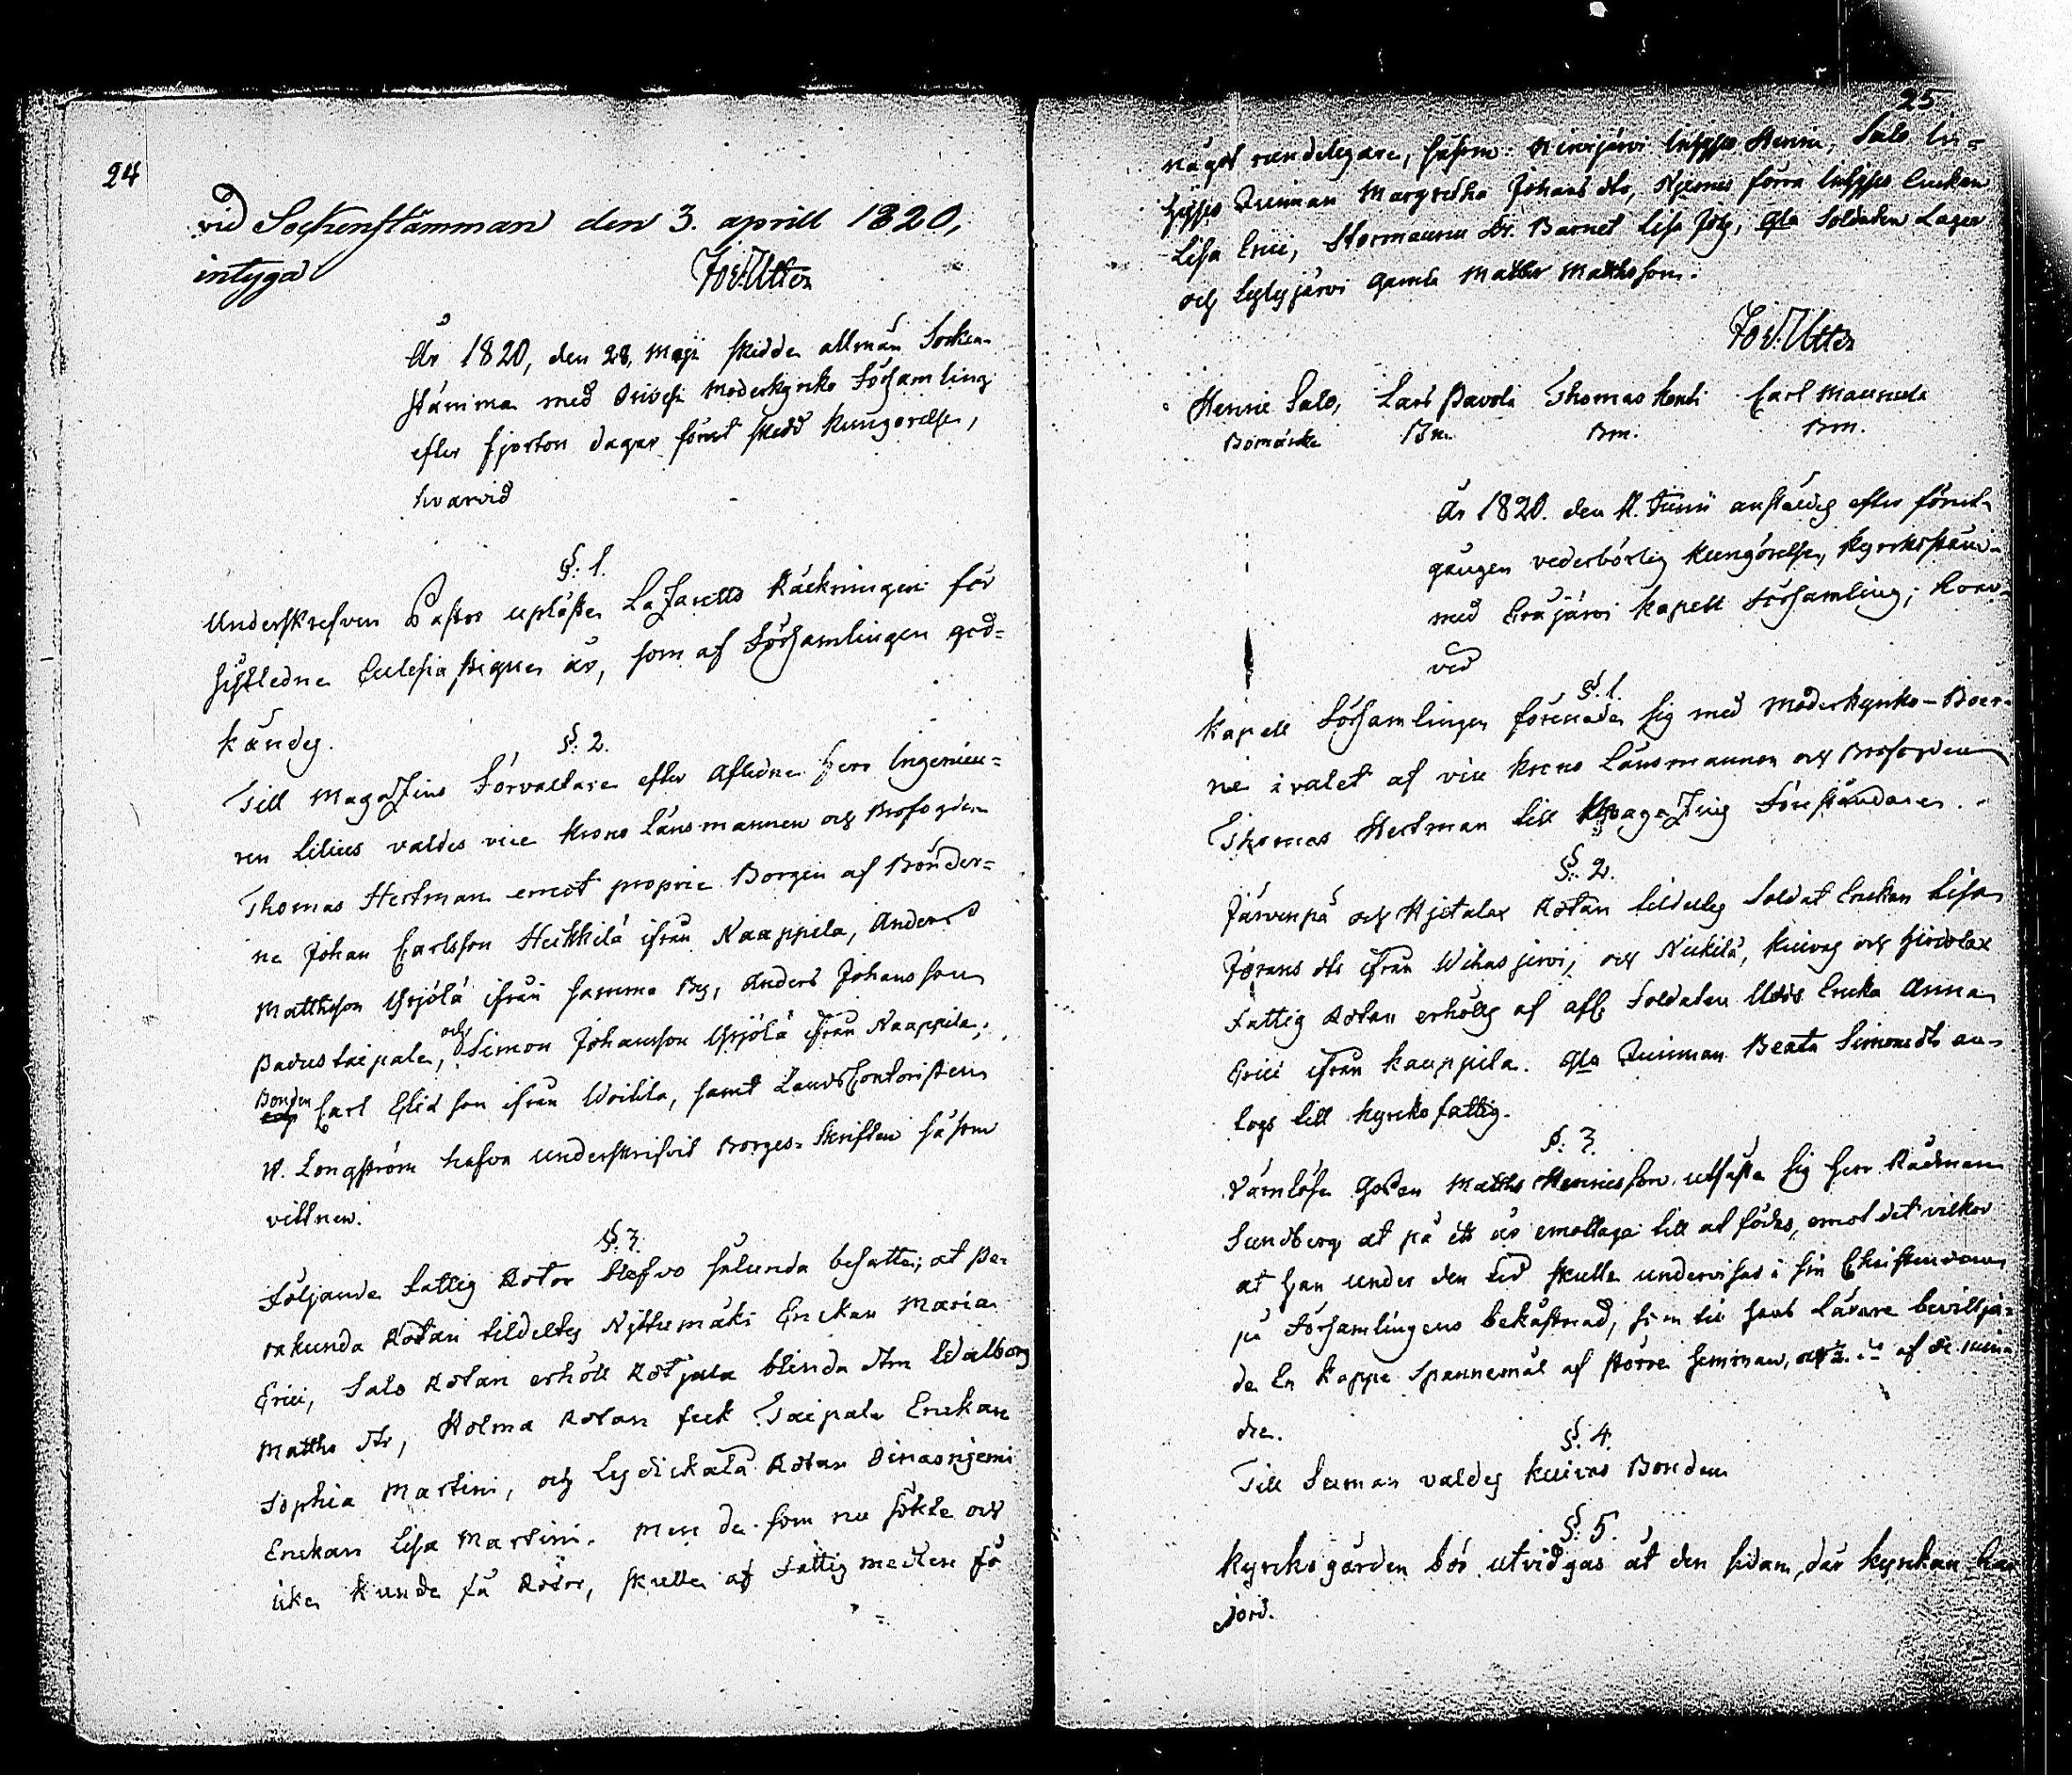 24
vid Sockenstämman den 3. aprill 1820,
intyga
Jos. Utter
År 1820, den 28, Maji skedde allmän Socken-
stämma med Orivesi Moderkyrko Församling
efter fjorton dagar förut skedd kungörelse,
hvarvid
§. 1.
Underskrefven Pastor upläste Lazaretts Räckningen för
sistledne Ecclesiastique år, som af Församlingen god=
kändes.
§. 2.
Till Magazins Förvaltare efter Aflidne Herr Ingenieu=
ren Lilius valdes vice krono Länsmannen och Brofogden
Thomas Hertman emot proprie Borgen af Bönder=
ne Johan Carlsson Heikkilä ifrån Naappila, Anders
Matthsson Yrjölä ifrån samma By, Anders Johansson
Padustaipale, och Simon Johansson Yrjölä ifrån Naappila;
Bonden Carl Elid son ifrån Woitila, samt LandsContoristen
W. Longström hafva underskrifvit Borges-skriften såsom
vittnen.
§. 3.
Följande Fattig Rotar blefvo sålunda besatte; at Pe-
rakunda Rotan tildeltes Nyttumäki Enckan Maria
Erici, Salo Rotan erhöll Rotjala blinda Walborg
Matths dtr, Holma Rotan feck Taipale Enckan
Sophia Martini, och Lydickälä Rotan Oinasnjemi
Enckan Lisa Martini. Men de som nu sökte och
icke kunde få Rotor, skulle af Fattig medlen få
25
något undstegare, såsom: Hirvijärvi Henric, Salo In=
hyses Quinnan Margretha Johans dtr, förra Inhyses Enckan
Lisa Erici, Stormaunu Barnet Lisa Joh, Gla Soldaten Lager
och Lylyjärvi Gamla Matths Mattsson.
Jos. Utter
Henric Salo, Lars Pavola Thomas Konti Carl Maunula
Bomärke Bm. Bm. Bm.
År 1820. den 11. Junii anstäldes efter förut
gången vederbörlig kungörelse, kyrkostäm-
med Eräjärvi kapell Församling; hvar-
vid
§. 1.
Kapell Församlingen förenade sig med Moderkyrko-Boer-
ne i valet af vice krono Länsmannen och Brofogden
Thomas Hertman till Magazins Föreståndare.
§. 2.
Järvenpä och Hjetalax Rotan tildeltes Soldat Enckan Lisa
Jörans dtr ifrån Wihasjervi; och Nickilä, Kuivas och Hirvolax
Fattig Rotan erhölls af afl. Soldaten Encka Anna
Erici ifrån Kauppila. Gla Quinnan Beata Simons dtr an-
togs till kyrko fattig.
§. 3.
Värnlöse Gossen Matths Henricsson utfäste sig Herr Rådman
Sundberg at på ett år emottaga till at födas, emot det vilkor
at han under den tid skulle undervisas i sin Christendom
på Församlingens bekåstnad, som til hans lärare beviljä-
de En kappe Spannemål af större hemman, och ½ do af de min-
dre.
§. 4.
Till Sexman valdes Kuivas Bonden
§. 5.
Kyrkogården bör utvidgas åt den sidan, där kyrckan har
jord.